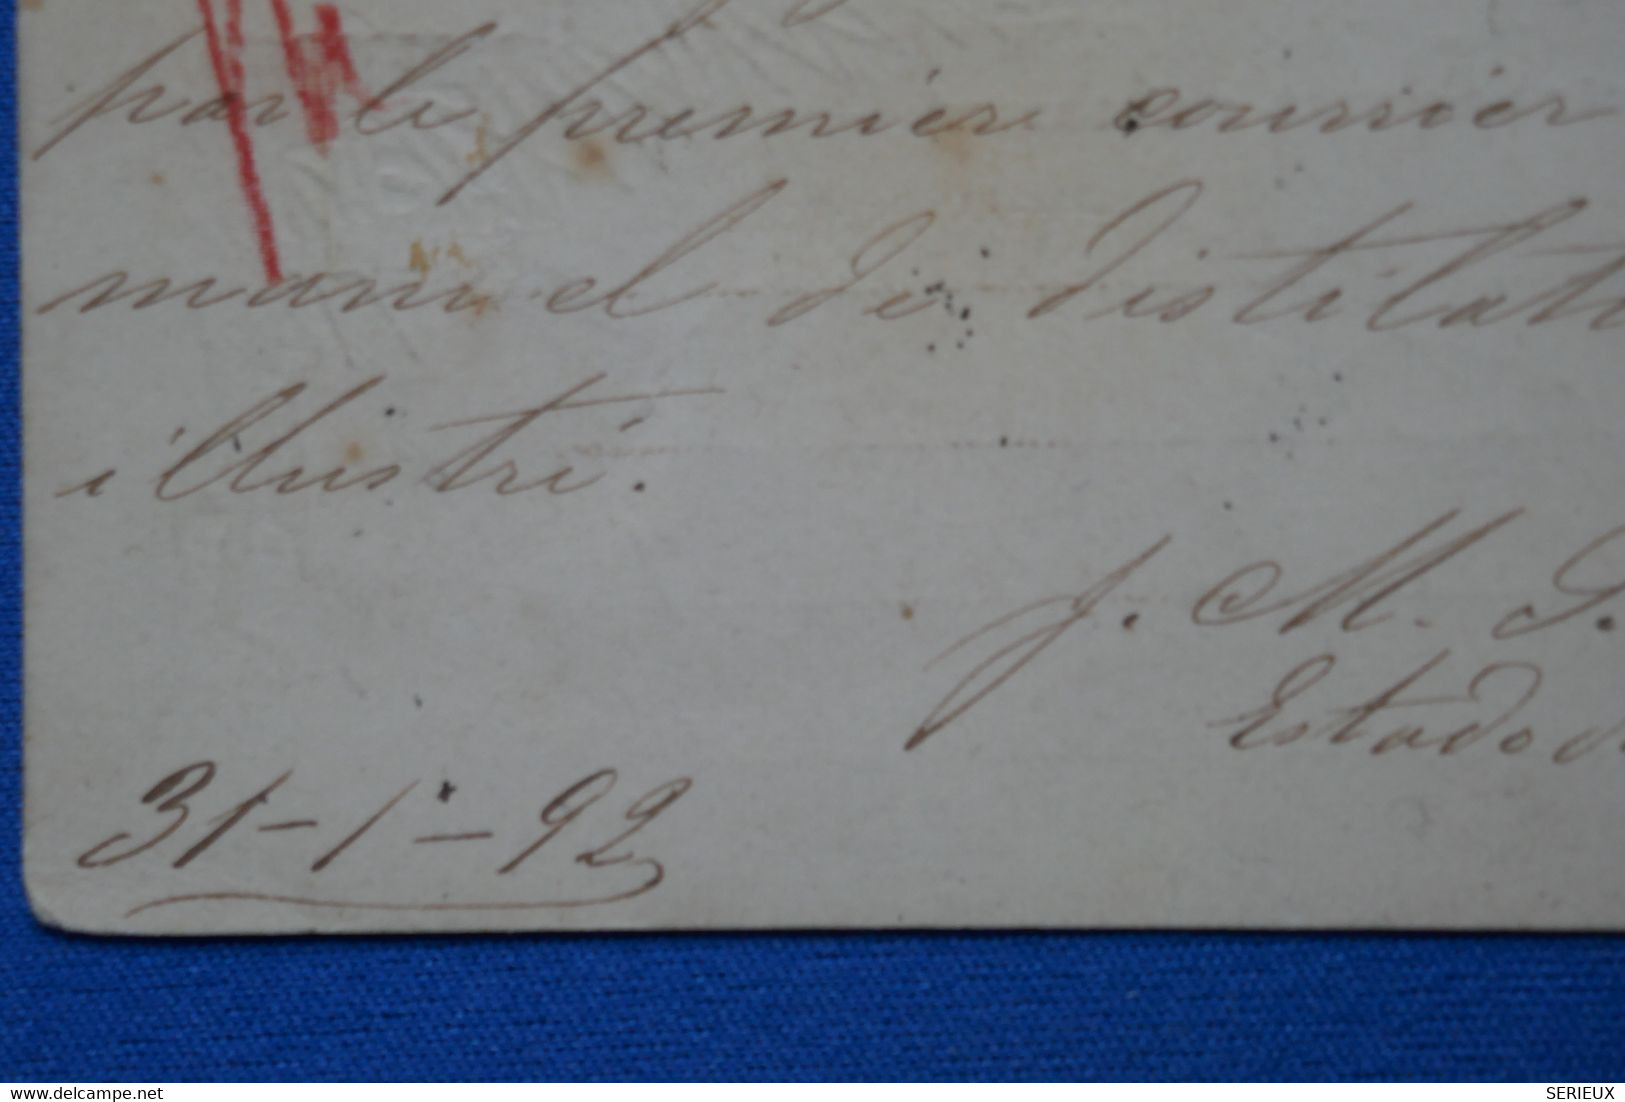 par le premier courrier
manuel de distilat
illustré.
J. M. S.
Estado d
31-1-92
www.delcampe.net
SERIEUX